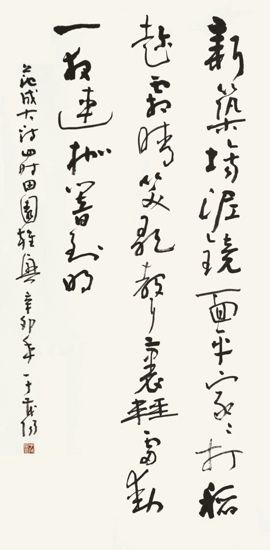 新築場泥鏡面平家々打稻
趁霜晴笑歌聲裏輕雷動
一夜連枷響到明
范成大詩四時田園雜興辛卯年于